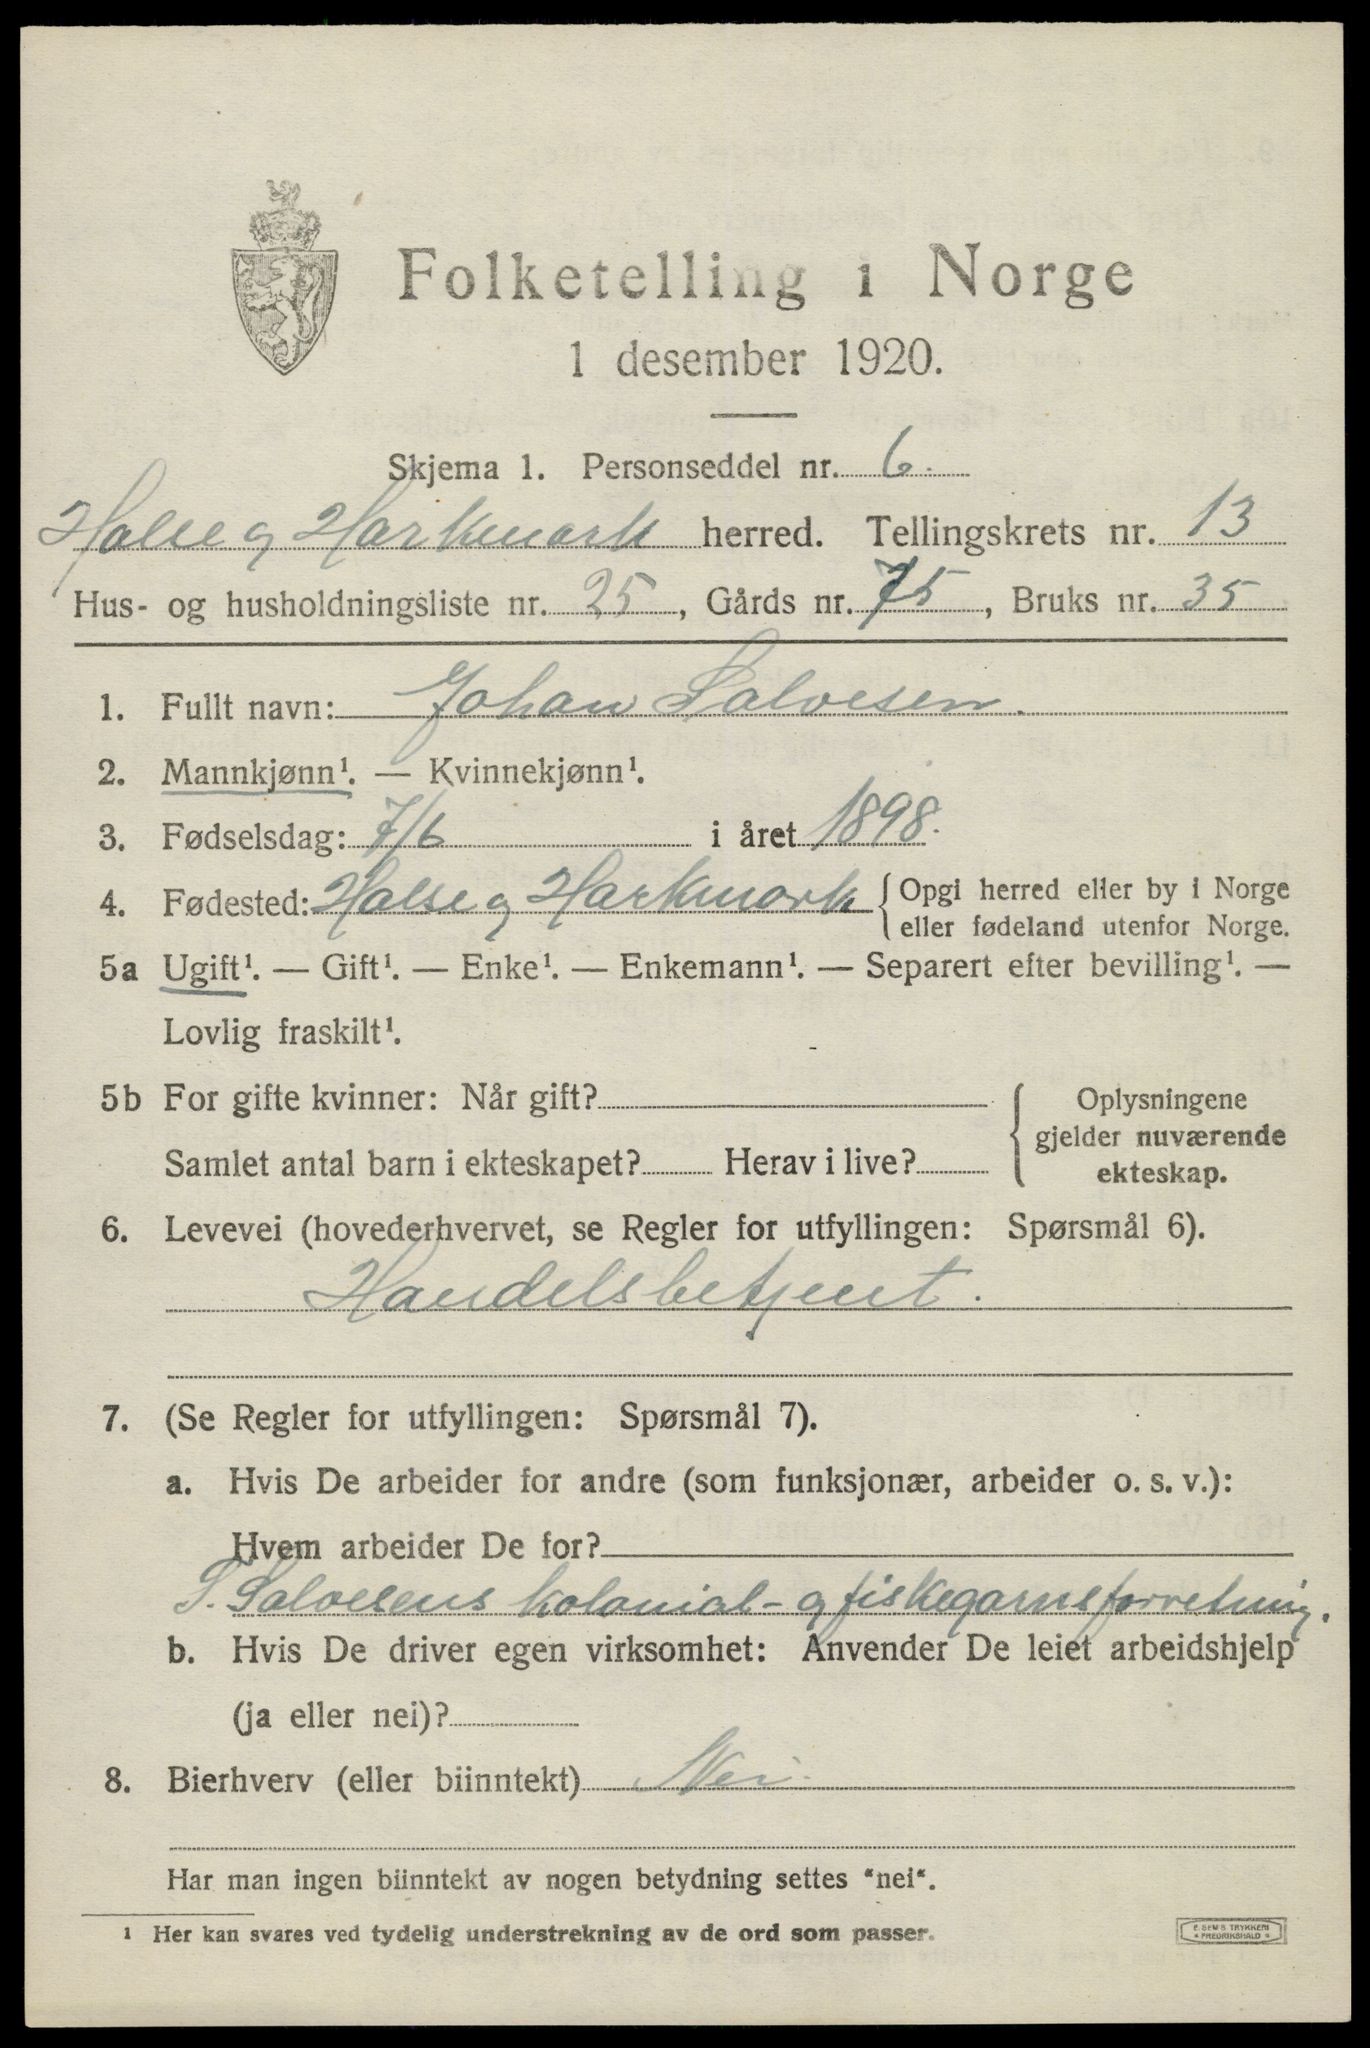 Folketelling i Norge
1 desember 1920.
Skjema 1. Personseddel nr. 6.
Halse og Harkmark herred. Tellingskrets nr. 13
Hus- og husholdningsliste nr. 25, Gårds nr. 75, Bruks nr. 35
1. Fullt navn: Johan Salvesen.
2. Mannkjønn¹. — Kvinnekjønn¹.
3. Fødselsdag: 7/6 i året 1898.
4. Fødested: Halse og Harkmark { Opgi herred eller by i Norge
eller fødeland utenfor Norge.
5a Ugift¹. — Gift¹. — Enke¹. — Enkemann¹. — Separert efter bevilling¹. —
Lovlig fraskilt¹.
5b For gifte kvinner: Når gift?
Samlet antal barn i ekteskapet? Herav i live?
{ Oplysningene
gjelder nuværende
ekteskap.
6. Levevei (hovederhvervet, se Regler for utfyllingen: Spørsmål 6).
Handelsbetjent.
7. (Se Regler for utfyllingen: Spørsmål 7).
a. Hvis De arbeider for andre (som funksjonær, arbeider o. s. v.):
Hvem arbeider De for?
T. Salvesens kolonial- og fiskegarnsforretning.
b. Hvis De driver egen virksomhet: Anvender De leiet arbeidshjelp
(ja eller nei)?
8. Bierhverv (eller biinntekt) Nei.
Har man ingen biinntekt av nogen betydning settes "nei".
¹ Her kan svares ved tydelig understrekning av de ord som passer.
E. SEM'S TRYKKERI
FREDRIKSHALD